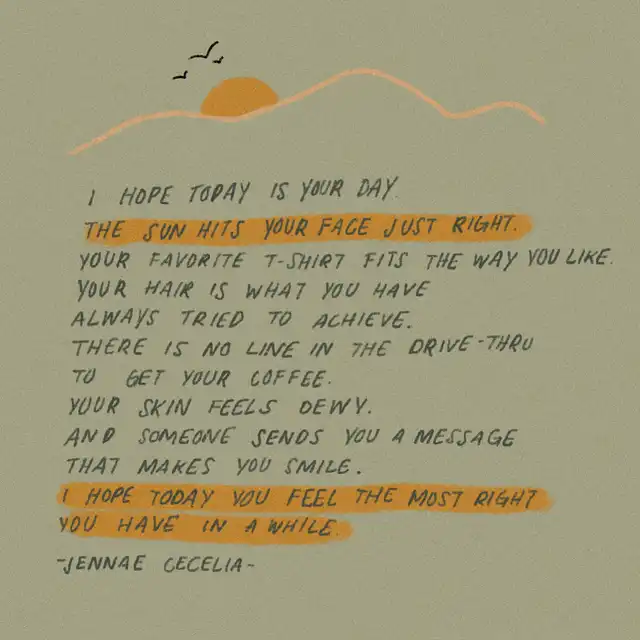 I HOPE TODAY IS YOUR DAY.
THE SUN HITS YOUR FACE JUST RIGHT.
YOUR FAVORITE T-SHIRT FITS THE WAY YOU LIKE.
YOUR HAIR IS WHAT YOU HAVE
ALWAYS TRIED TO ACHIEVE.
THERE IS NO LINE IN THE DRIVE-THRU
TO GET YOUR COFFEE.
YOUR SKIN FEELS DEWY.
AND SOMEONE SENDS YOU A MESSAGE
THAT MAKES YOU SMILE.
I HOPE TODAY YOU FEEL THE MOST RIGHT
YOU HAVE IN A WHILE.
-JENNAE CECELIA-